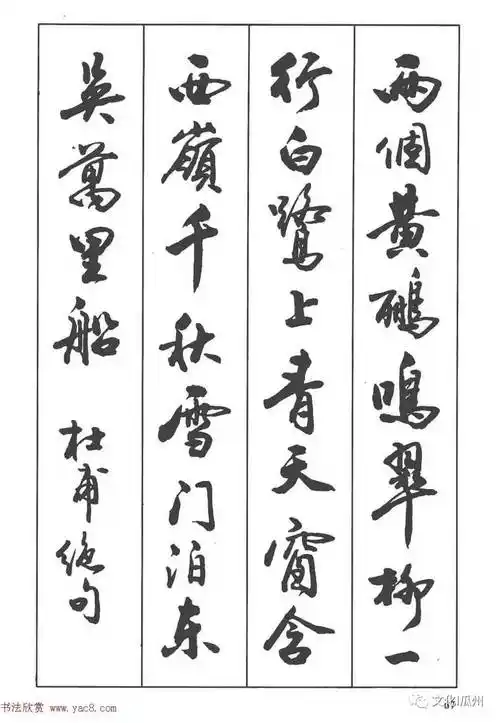 兩個黃鸝鳴翠柳一
行白鷺上青天窗含
西嶺千秋雪门泊东
吳萬里船
杜甫绝句
书法欣赏 www.yac8.com
67
文化瓜州